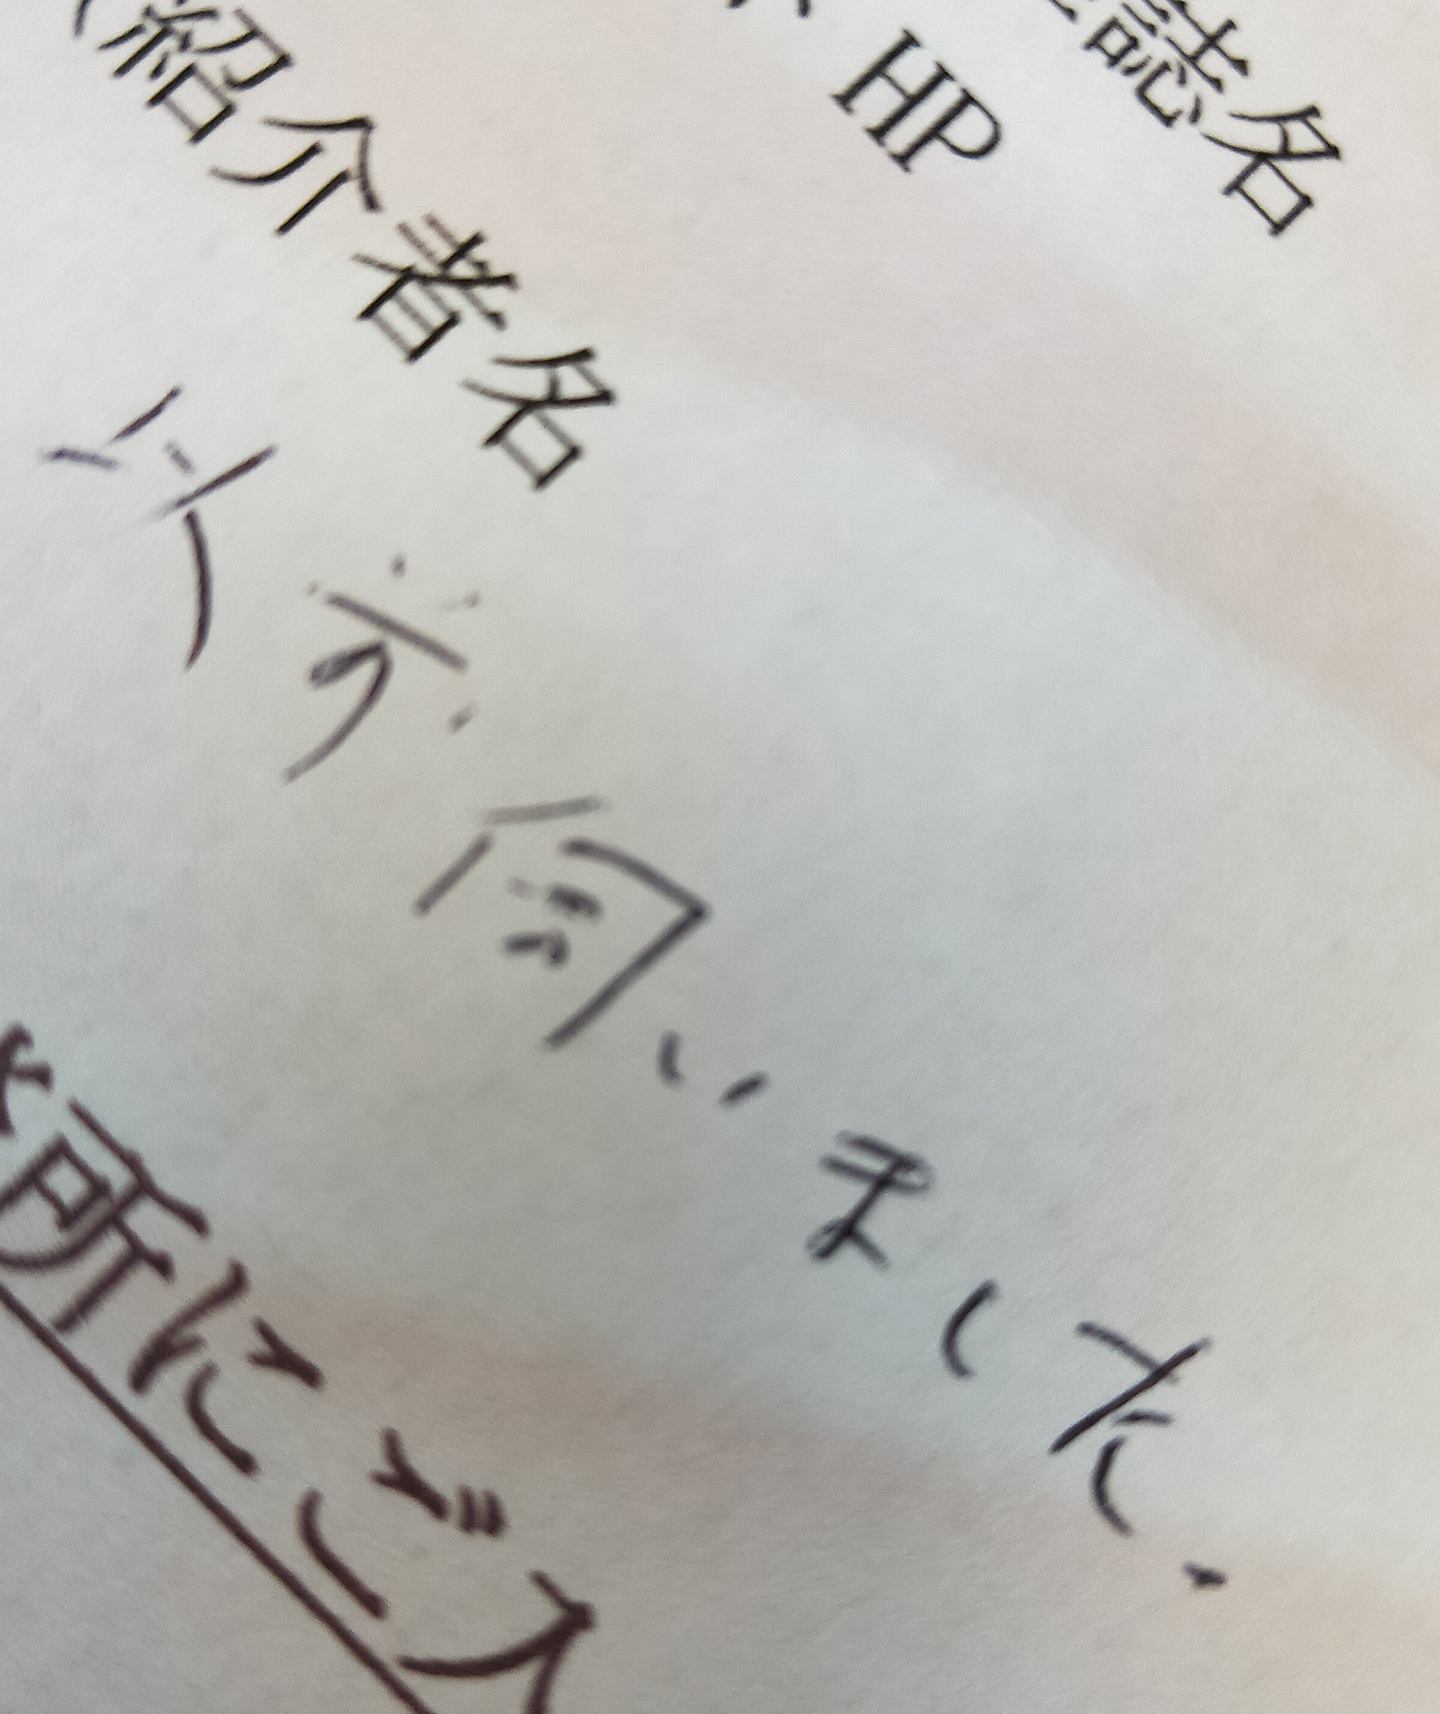 誌名
HP
紹介者名
以前伺いました.
所にご